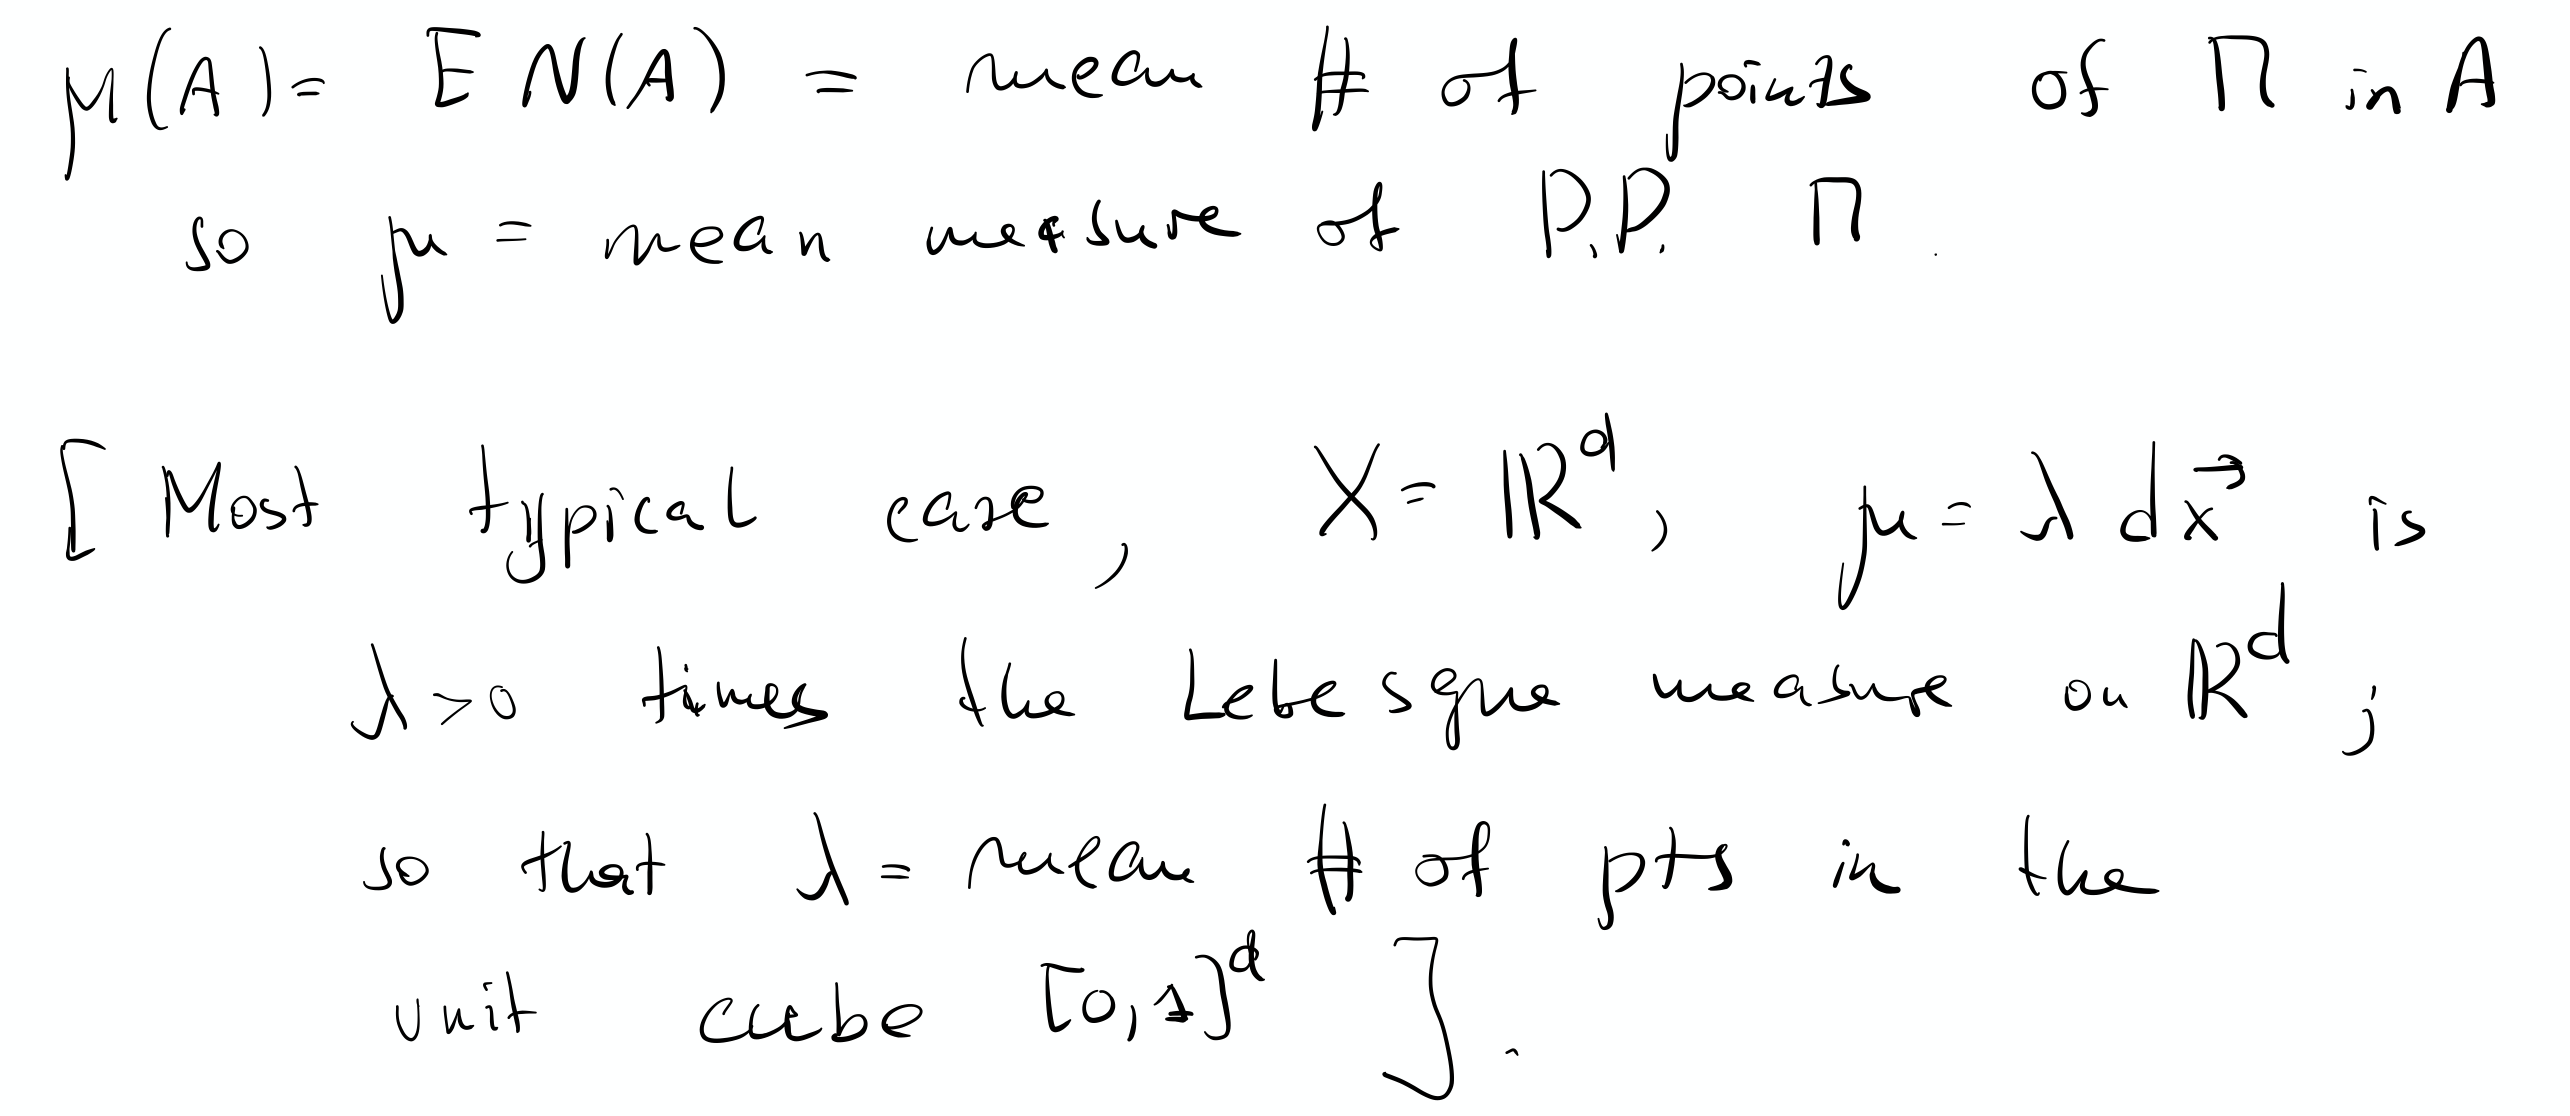 μ(A) = E N(A) = mean # of points of Π in A
so μ = mean measure of P.P. Π.
[Most typical case, X = ℝ^d, μ = λ dx⃗ is
λ>0 times the Lebesgue measure on ℝ^d;
so that λ = mean # of pts in the
unit cube [0,1]^d ].